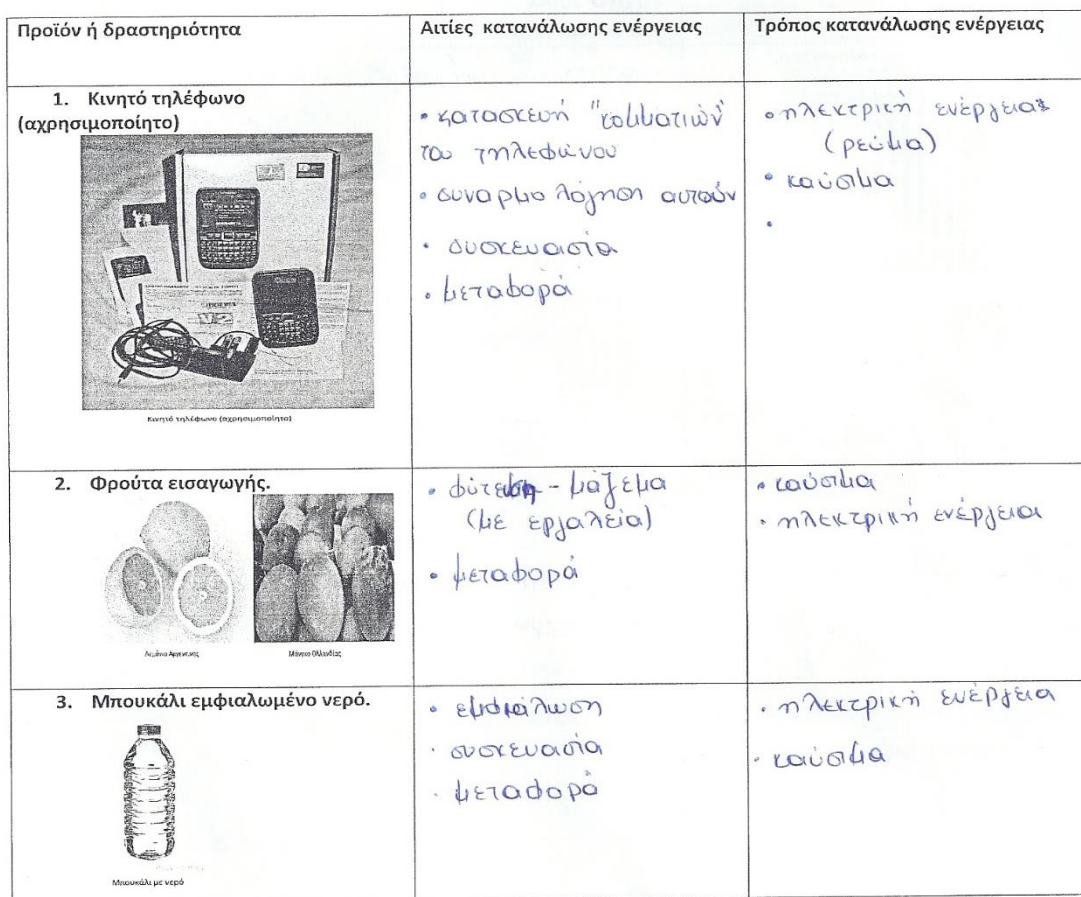 Προϊόν ή δραστηριότητα
Αιτίες κατανάλωσης ενέργειας
Τρόπος κατανάλωσης ενέργειας
1. Κινητό τηλέφωνο
(αχρησιμοποίητο)
Κινητό τηλέφωνο (αχρησιμοποίητο)
• κατασκευή "κομματιών"
του τηλεφώνου
• συναρμολόγηση αυτών
• συσκευασία
• μεταφορά
• ηλεκτρική ενέργεια
(ρεύμα)
• καύσιμα
•
2. Φρούτα εισαγωγής.
Λεμόνια Αργεντινης
Μάνγκο Ολλανδίας
• φύτευση - μάζεμα
(με εργαλεία)
• μεταφορά
• καύσιμα
• ηλεκτρική ενέργεια
3. Μπουκάλι εμφιαλωμένο νερό.
Μπουκάλι με νερό
• εμφιάλωση
• συσκευασία
• μεταφορά
• ηλεκτρική ενέργεια
• καύσιμα